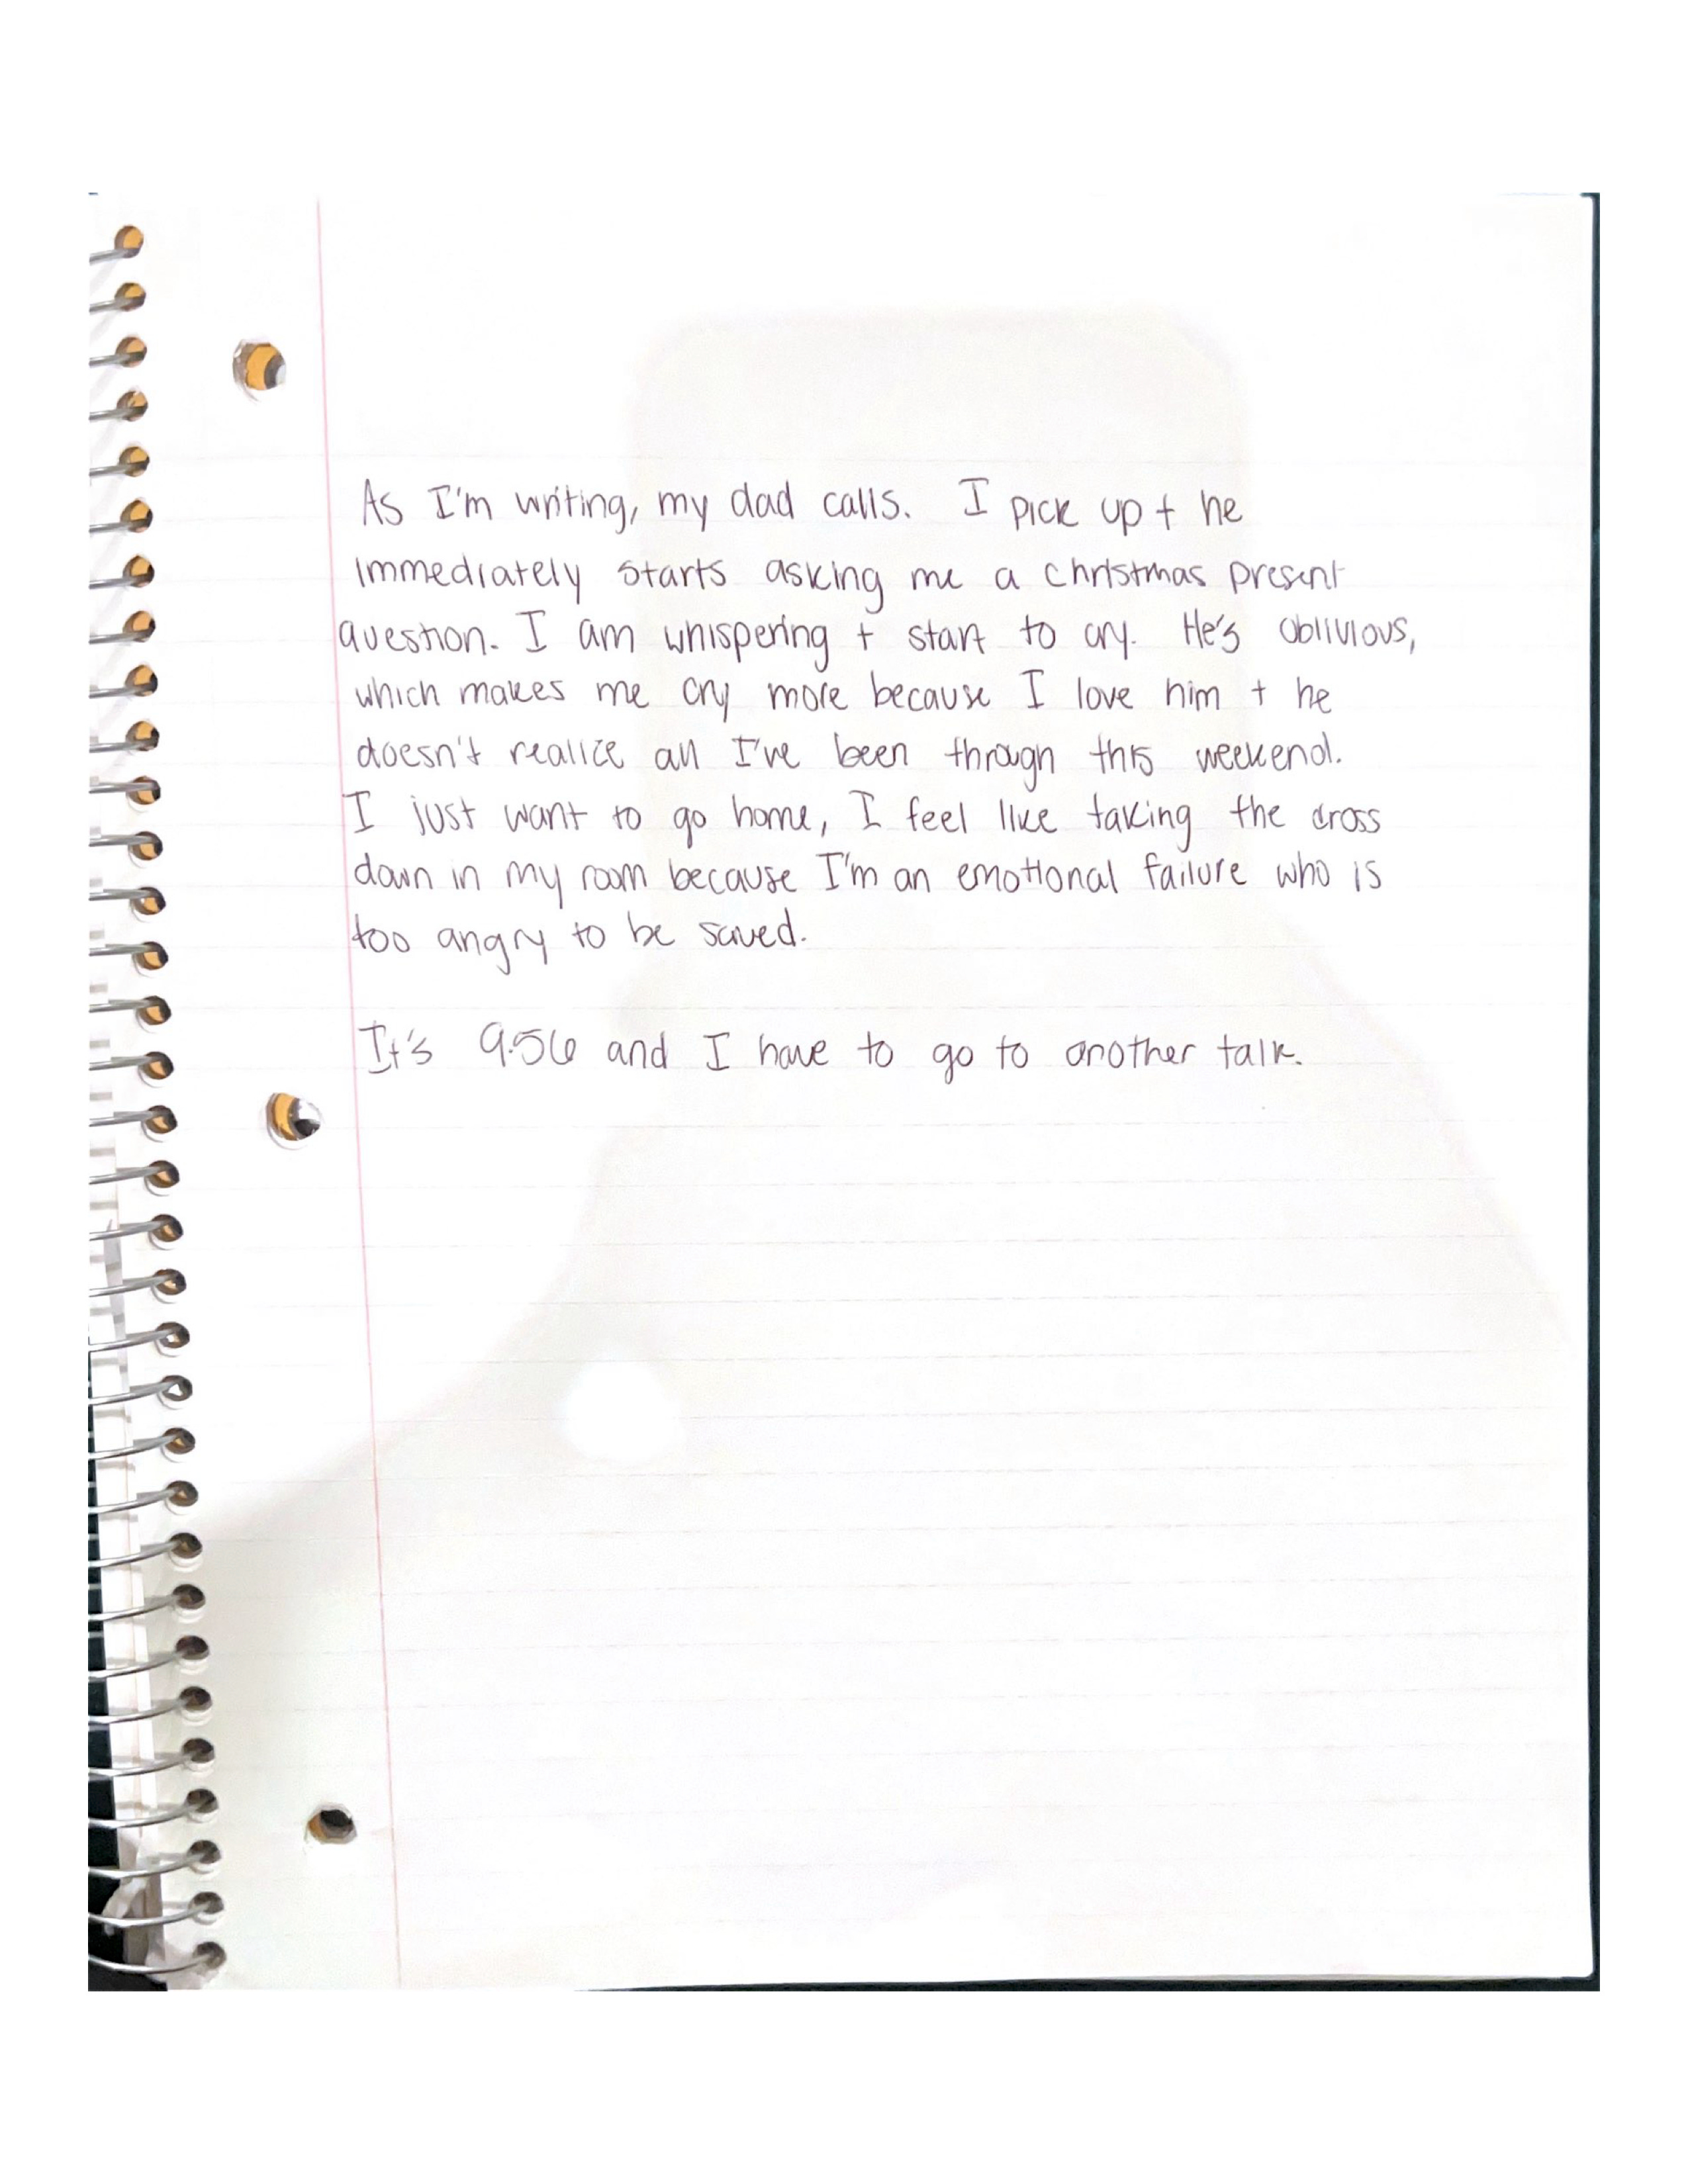 As I'm writing, my dad calls. I pick up + he
immediately starts asking me a christmas present
question. I am whispering + start to cry. He's oblivious,
which makes me cry more because I love him + he
doesn't realize all I've been through this weekend.
I just want to go home, I feel like taking the cross
down in my room because I'm an emotional failure who is
too angry to be saved.
It's 9:56 and I have to go to another talk.